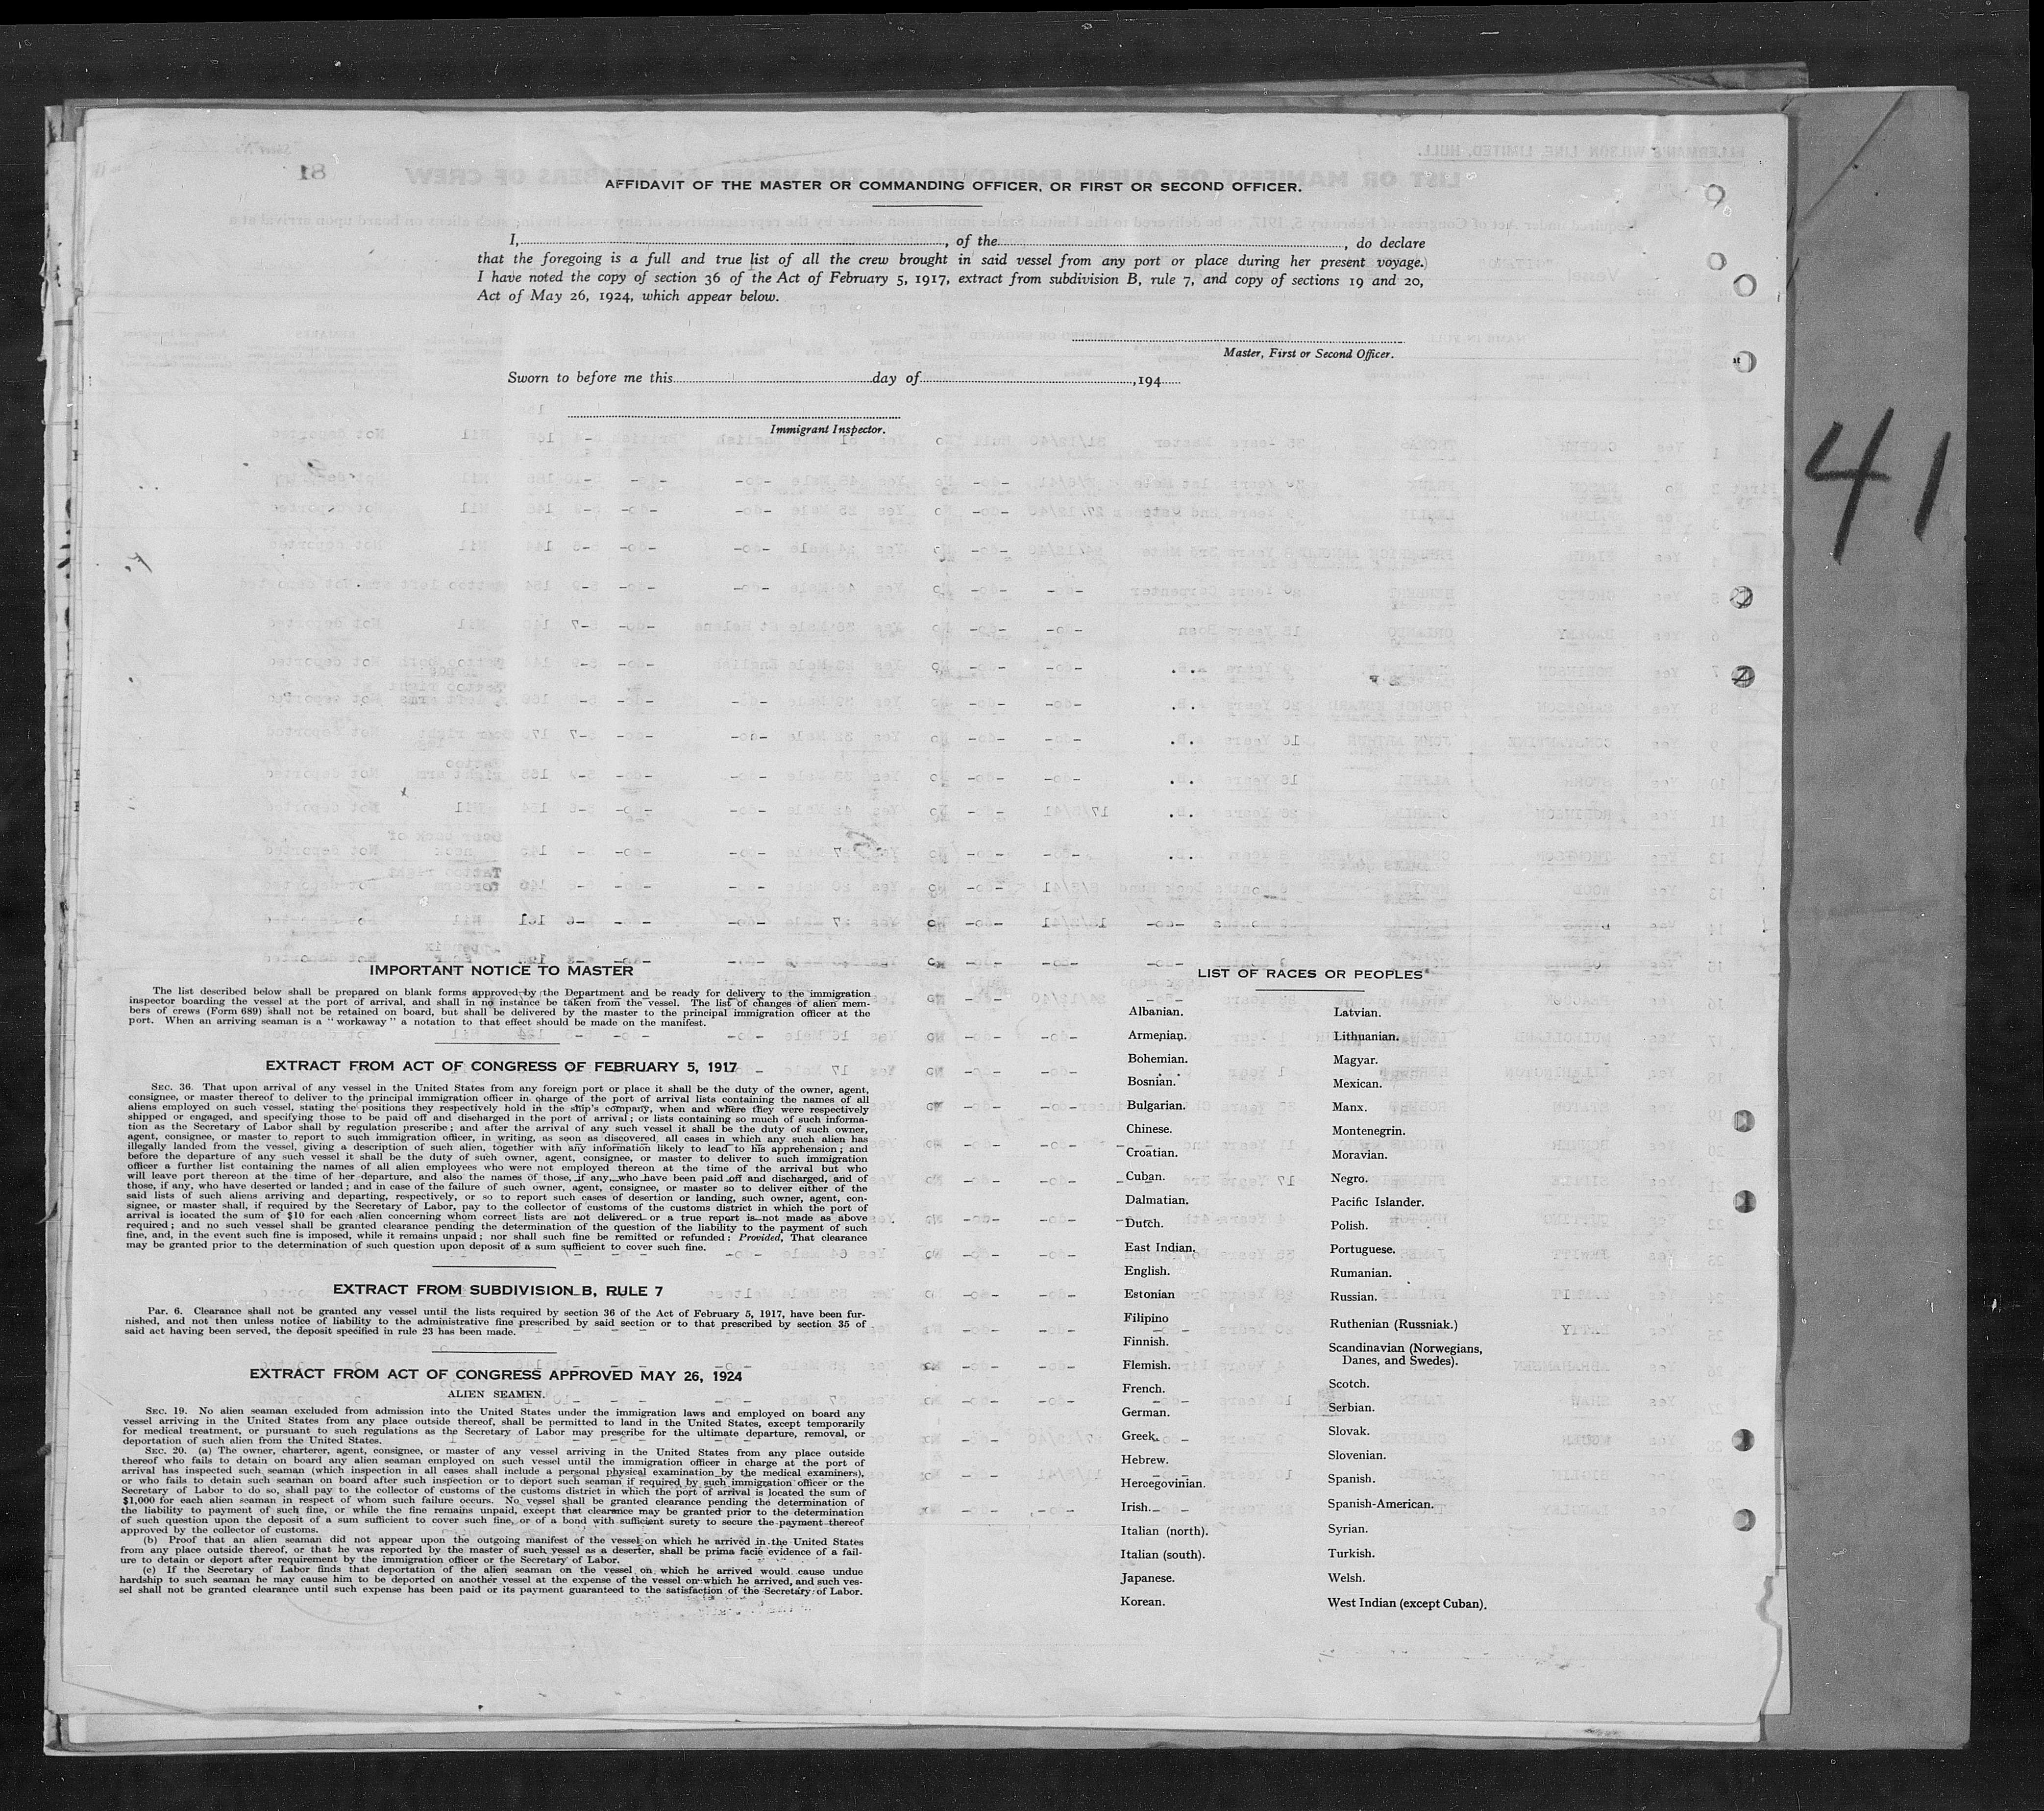 AFFIDAVIT OF THE MASTER OR COMMANDING OFFICER, OR FIRST OR SECOND OFFICER.
I, , of the , do declare
that the foregoing is a full and true list of all the crew brought in said vessel from any port or place during her present voyage.
I have noted the copy of section 36 of the Act of February 5, 1917, extract from subdivision B, rule 7, and copy of sections 19 and 20,
Act of May 26, 1924, which appear below.
Master, First or Second Officer.
Sworn to before me this day of ,194
Immigrant Inspector.
41
IMPORTANT NOTICE TO MASTER
The list described below shall be prepared on blank forms approved by the Department and be ready for delivery to the immigration
inspector boarding the vessel at the port of arrival, and shall in no instance be taken from the vessel. The list of changes of alien mem-
bers of crews (Form 689) shall not be retained on board, but shall be delivered by the master to the principal immigration officer at the
port. When an arriving seaman is a "workaway" a notation to that effect should be made on the manifest.
EXTRACT FROM ACT OF CONGRESS OF FEBRUARY 5, 1917
SEC. 36. That upon arrival of any vessel in the United States from any foreign port or place it shall be the duty of the owner, agent,
consignee, or master thereof to deliver to the principal immigration officer in charge of the port of arrival lists containing the names of all
aliens employed on such vessel, stating the positions they respectively hold in the ship's company, when and where they were respectively
shipped or engaged, and specifying those to be paid off and discharged in the port of arrival; or lists containing so much of such informa-
tion as the Secretary of Labor shall by regulation prescribe; and after the arrival of any such vessel it shall be the duty of such owner,
agent, consignee, or master to report to such immigration officer, in writing, as soon as discovered, all cases in which any such alien has
illegally landed from the vessel, giving a description of such alien, together with any information likely to lead to his apprehension; and
before the departure of any such vessel it shall be the duty of such owner, agent, consignee, or master to deliver to such immigration
officer a further list containing the names of all alien employees who were not employed thereon at the time of the arrival but who
will leave port thereon at the time of her departure, and also the names of those, if any, who have been paid off and discharged, and of
those, if any, who have deserted or landed; and in case of the failure of such owner, agent, consignee, or master so to deliver either of the
said lists of such aliens arriving and departing, respectively, or so to report such cases of desertion or landing, such owner, agent, con-
signee, or master shall, if required by the Secretary of Labor, pay to the collector of customs of the customs district in which the port of
arrival is located the sum of $10 for each alien concerning whom correct lists are not delivered or a true report is not made as above
required; and no such vessel shall be granted clearance pending the determination of the question of the liability to the payment of such
fine, and, in the event such fine is imposed, while it remains unpaid; nor shall such fine be remitted or refunded: Provided, That clearance
may be granted prior to the determination of such question upon deposit of a sum sufficient to cover such fine.
EXTRACT FROM SUBDIVISION B, RULE 7
Par. 6. Clearance shall not be granted any vessel until the lists required by section 36 of the Act of February 5, 1917, have been fur-
nished, and not then unless notice of liability to the administrative fine prescribed by said section or to that prescribed by section 35 of
said act having been served, the deposit specified in rule 23 has been made.
EXTRACT FROM ACT OF CONGRESS APPROVED MAY 26, 1924
ALIEN SEAMEN.
SEC. 19. No alien seaman excluded from admission into the United States under the immigration laws and employed on board any
vessel arriving in the United States from any place outside thereof, shall be permitted to land in the United States, except temporarily
for medical treatment, or pursuant to such regulations as the Secretary of Labor may prescribe for the ultimate departure, removal, or
deportation of such alien from the United States.
SEC. 20. (a) The owner, charterer, agent, consignee, or master of any vessel arriving in the United States from any place outside
thereof who fails to detain on board any alien seaman employed on such vessel until the immigration officer in charge at the port of
arrival has inspected such seaman (which inspection in all cases shall include a personal physical examination by the medical examiners),
or who fails to detain such seaman on board after such inspection or to deport such seaman if required by such immigration officer or the
Secretary of Labor to do so, shall pay to the collector of customs of the customs district in which the port of arrival is located the sum of
$1,000 for each alien seaman in respect of whom such failure occurs. No vessel shall be granted clearance pending the determination of
the liability to payment of such fine, or while the fine remains unpaid, except that clearance may be granted prior to the determination
of such question upon the deposit of a sum sufficient to cover such fine, or of a bond with sufficient surety to secure the payment thereof
approved by the collector of customs.
(b) Proof that an alien seaman did not appear upon the outgoing manifest of the vessel on which he arrived in the United States
from any place outside thereof, or that he was reported by the master of such vessel as a deserter, shall be prima facie evidence of a fail-
ure to detain or deport after requirement by the immigration officer or the Secretary of Labor.
(c) If the Secretary of Labor finds that deportation of the alien seaman on the vessel on which he arrived would cause undue
hardship to such seaman he may cause him to be deported on another vessel at the expense of the vessel on which he arrived, and such ves-
sel shall not be granted clearance until such expense has been paid or its payment guaranteed to the satisfaction of the Secretary of Labor.
LIST OF RACES OR PEOPLES
Albanian.
Armenian.
Bohemian.
Bosnian.
Bulgarian.
Chinese.
Croatian.
Cuban.
Dalmatian.
Dutch.
East Indian.
English.
Estonian
Filipino
Finnish.
Flemish.
French.
German.
Greek.
Hebrew.
Hercegovinian.
Irish.
Italian (north).
Italian (south).
Japanese.
Korean.
Latvian.
Lithuanian.
Magyar.
Mexican.
Manx.
Montenegrin.
Moravian.
Negro.
Pacific Islander.
Polish.
Portuguese.
Rumanian.
Russian.
Ruthenian (Russniak.)
Scandinavian (Norwegians,
Danes, and Swedes).
Scotch.
Serbian.
Slovak.
Slovenian.
Spanish.
Spanish-American.
Syrian.
Turkish.
Welsh.
West Indian (except Cuban).